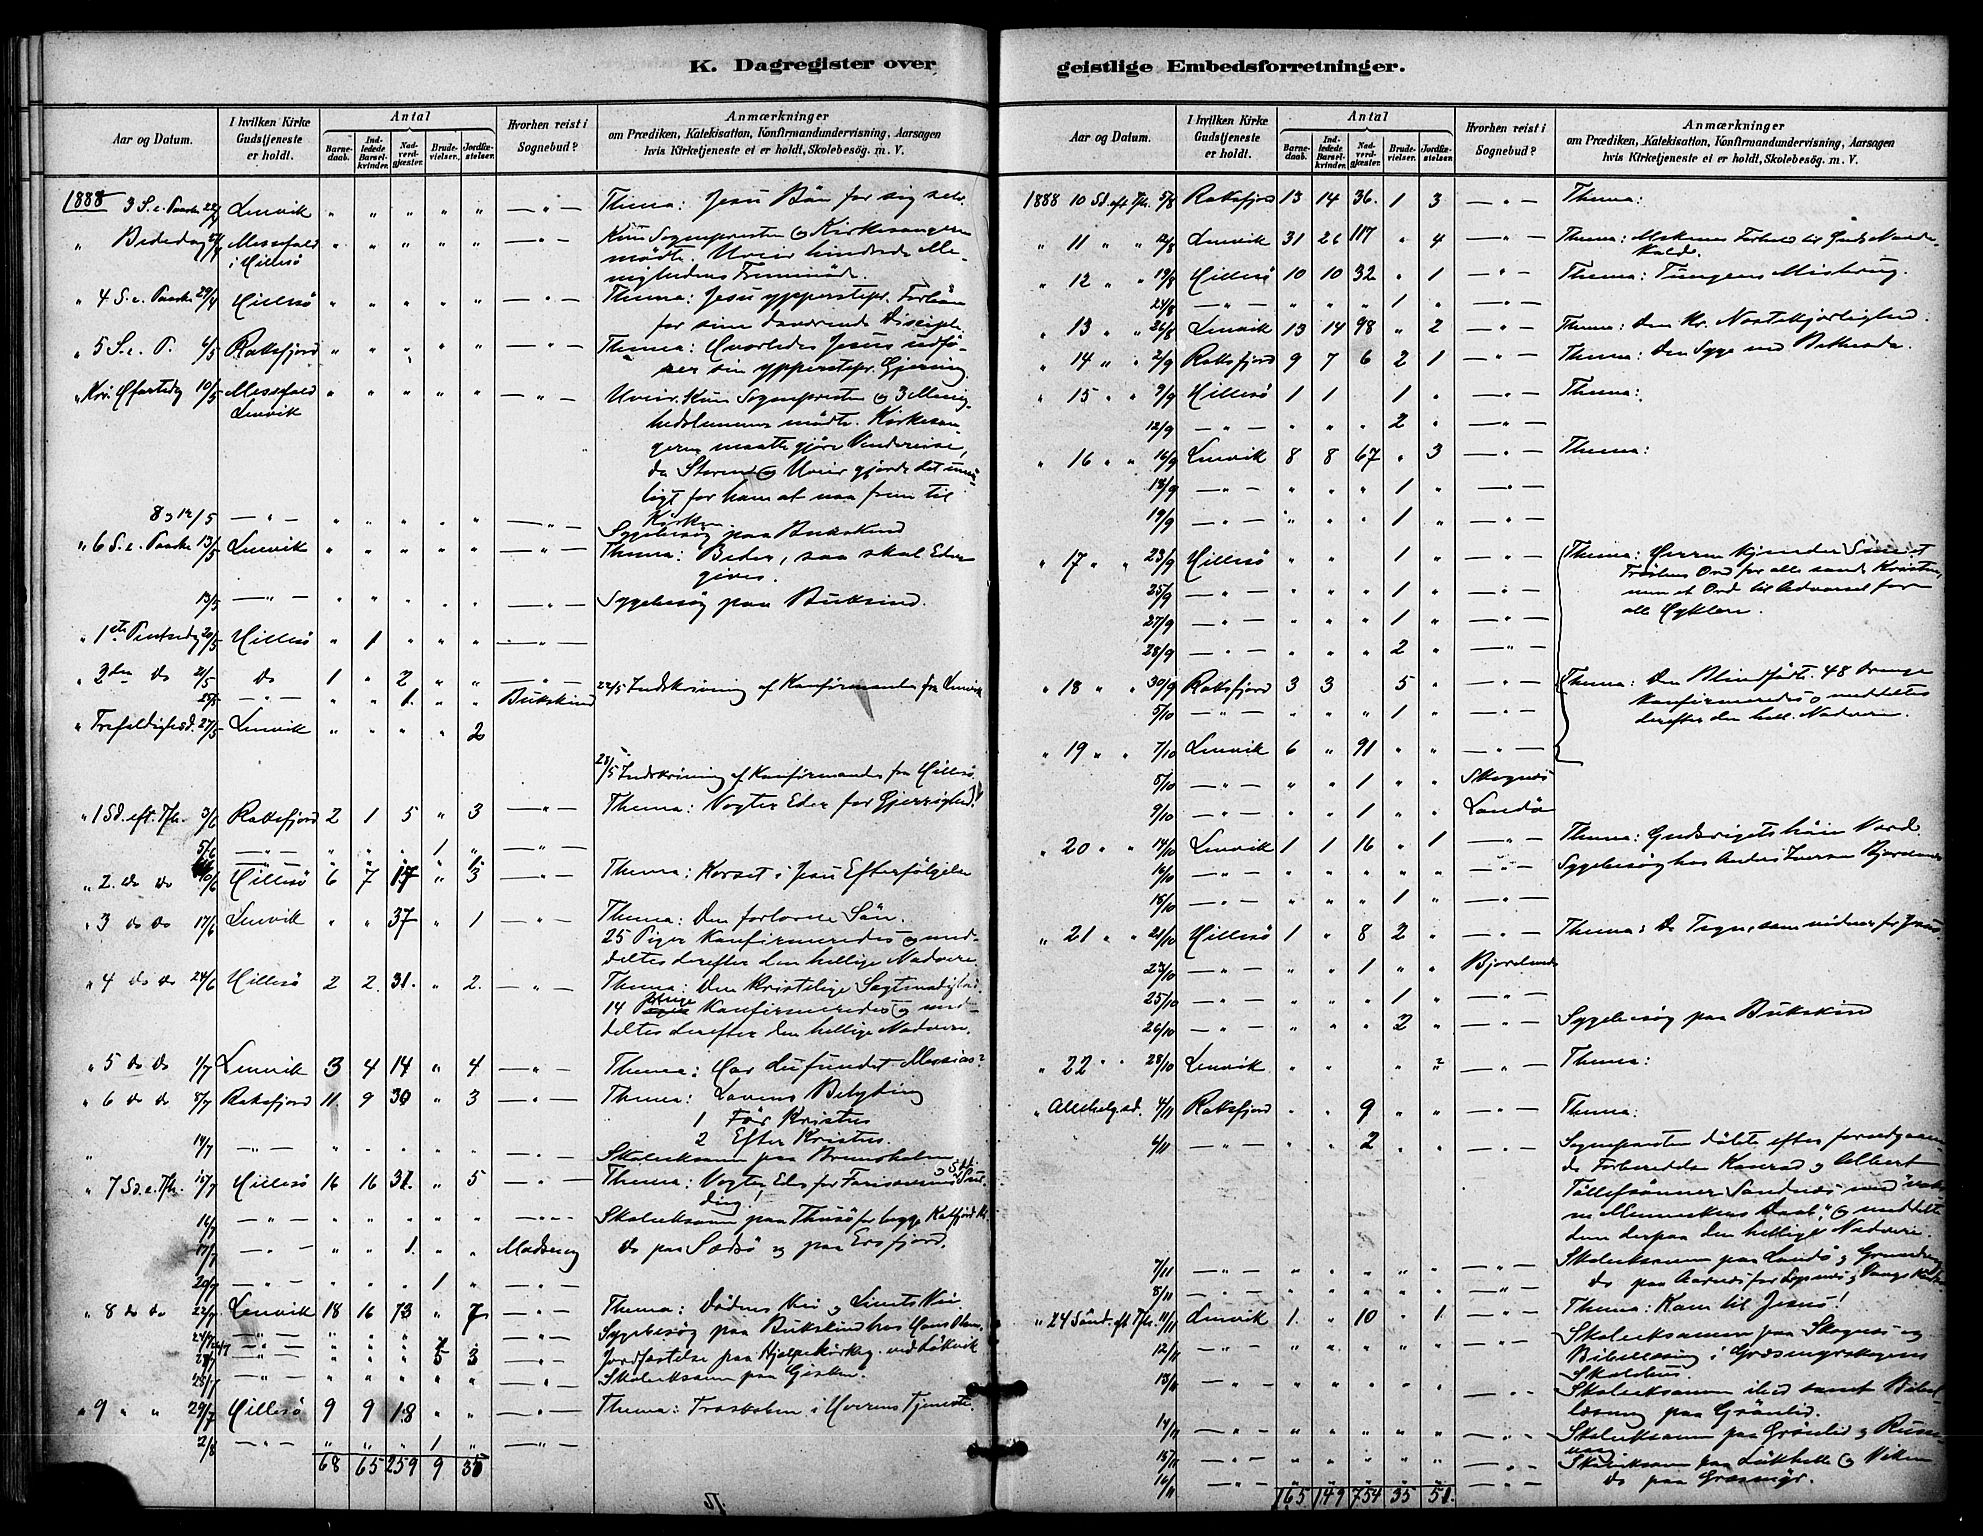 K. Dagregister over
geistlige Embedsforretninger.
Aar og Datum.
I hvilken Kirke
Gudstjeneste
er holdt.
Antal
Barne-
daab.
Ind-
ledede
Barsel-
kvinder.
Nad-
verd-
gjæster.
Brude-
vielser.
Jordfæ-
stelser.
Hvorhen reist i
Sognebud?
Anmærkninger
om Prædiken, Katekisation, Konfirmandundervisning, Aarsagen
hvis Kirketjeneste ei er holdt, Skolebesøg. m. V.
1888 3 S. e. Paaske 22/4 Lenvik " " " " " — " — Thema: Jesu Bön for sig selv.
" Bededag 27/4 Messefald " " " " " — " — Kun Sognepresten og Kirkesangeren
i Hillesö mödte. Uveir hindrede Me-
nighedens Fremmöde.
" 4 S. e. Paaske 29/4 Hillesö " " " " " — " — Thema: Jesu ypperstepr. Forbön
for sine daværende Disciple.
" 5 S. e. P. 6/5 Raksfjord " " " " " — " — Thema: Hvorledes Jesus udfö-
rer sin ypperstepr. Gjerning
" Kr. Hfartsdg 10/5 Messefald " " " " " — " — Uveir. Kun Sognepresten og 3 Menig-
Lenvik hedslemmer mödte. Kirkesan-
geren maatte gjöre Vendereise,
da Storm og Uveir gjorde det umu-
ligt for ham at naa frem til
Kirken
8 og 12/5 — " — " " " " " — " — Sygebesög paa Bukskind
" 6 S. e. Paaske 13/5 Lenvik " " " " " — " — Thema: Beder, saa skal Eder
gives.
13/5 — " — " " " " " — " — Sygebesög paa Bukskind.
" 1ste Pintsedg 20/5 Hillesö " 1 " " " — " —
" 2den do 21/5 do 1 " 2 " " — " — 22/5 Indskrivning af Konfirmanter fra Lenvik
25/5 — " — " " 1. " " Bukskind
" Trefoldighedsd. 27/5 Lenvik " " " " 2
28/5 Indskrivning af Konfirmanter fra Hillesö
" 1 Sd. eft. Tfh. 3/6 Raksfjord 2 1 5 " 3 — " — Thema: Vogter Eder for Gjerrighed
5/6 — " — " " " 1 " — " —
" 2. do do 10/6 Hillesö 6 7 17 " 3 — " — Thema: Korset i Jesu Efterfölgelse
" 3 do do 17/6 Lenvik " " 37 " 1 — " — Thema: Den forlorne Sön.
25 Piger konfirmeredes og med-
deltes derefter den hellige Nadvere.
" 4 do do 24/6 Hillesö 2 2. 31. " 2. — " — Thema: Den kristelige Sagtmodighed.
14 Piger konfirmeredes og med-
deltes derefter den hellige Nadvere.
" 5 do do 1/7 Lenvik 3 4 14 " 4 — " — Thema: Har du fundet Messias?
" 6 do do 8/7 Raksfjord 11 9 30 " 3 — " — Thema: Lovens Betydning
1 För Kristus
2 Efter Kristus.
" 14/7 — " — " " " " " — " — Skoleeksamen paa Brensholmen
" 7 Sd. e. Tfh. 15/7 Hillesö 16 16 31. " 5 — " — Thema: Vogter Eder for Farisæernes Sur-
deig!
16/7 — " — " " " " " — " — Skoleeksamen paa
17/7 — " — " " 1. " " do paa og paa Ersfjord.
20/7 — " — " " " 1 " — " —
" 8 do do 22/7 Lenvik 18 16 73 " 7 — " — Thema: Dödens Vei og Livets Vei
24/7 — " — " " " " " Sygebesög paa Bukskind hos Hans
27/7 — " — " " " 5 3 — " — Jordfæstelse paa
28/7 — " — " " " " " — " — Skoleeksamen paa
" 9 " " 29/7 Hillesö 9 9 18 " " — " — Thema: Troskaben i Herrens Tjeneste
2/8 — " — " " " 1 " — " —
68 65 259 9 35
Aar og Datum.
I hvilken Kirke
Gudstjeneste
er holdt.
Antal
Barne-
daab.
Ind-
ledede
Barsel-
kvinder.
Nad-
verd-
gjæster.
Brude-
vielser.
Jordfæ-
stelser.
Hvorhen reist i
Sognebud?
Anmærkninger
om Prædiken, Katekisation, Konfirmandundervisning, Aarsagen
hvis Kirketjeneste ei er holdt, Skolebesøg. m. V.
1888 10 Sd. eft Tfh. 5/8 Raksfjord 13 14 36. 1 3 — " — Thema:
" 11 " " 12/8 Lenvik 31 26 117 " 4 — " — Thema: Forhold til Guds Naade-
kald.
" 12 " " 19/8 Hillesö 10 10 32 " 1 — " — Thema: Tungens Misbrug.
24/8 — " — " " " 1 " — " —
" 13 " " 26/8 Lenvik 13 14 98 " 2 — " — Thema: Den kr. Næstekjærlighed.
" 14 " " 2/9 Raksfjord 9 7 6 2 1 — " — Thema: Den Syge ved Bethesda
" 15 " " 9/9 Hillesö 1 1 1 " — " — Thema:
12/9 — " — " " " 2 " — " —
" 16 " " 16/9 Lenvik 8 8 67 " 3 — " — Thema:
18/9 — " — " " " 1 " — " —
19/9 — " — " " " 1 " — " —
" 17 " " 23/9 Hillesö " " 1 " — " — Thema: Herren kjender Sine: et
Tröstens Ord for alle sande Kristne,
men et Ord til Advarsel for
alle Hyklere.
25/9 — " — " " " 1 " — " —
27/9 — " — " " " 1 " — " —
28/9 — " — " " " 2 " — " —
" 18 " " 30/9 Raksfjord 3 3 5 " — " — Thema: Den Blindfödte. 48 Drenge
konfirmeredes og meddeltes
derefter den hell. Nadvere.
5/10 — " — " " " 1 " — " —
" 19 " " 7/10 Lenvik 6 " 91 " " — " —
5/10 — " — " " 1 " " Skognes
9/10 — " — " " 1 " " Landö
" 20 " " 14/10 Lenvik 1 1 16 " 1 — " — Thema: Gudsrigets
16/10 — " — " " " " " — " — Sygebesög hos Iversen
18/10 — " — " " " 1 " — " —
" 21 " " 21/10 Hillesö 1 " 8 2 " — " — Thema: De Tegn, som vidner for Jesus.
23/10 — " — " " 1 " "
25/10 — " — " " " 1 " — " —
26/10 — " — " " " 2 " — " — Sygebesög paa Bukskind
" 22 " " 28/10 Lenvik " " " " — " — Thema:
" Allehelgsd. 4/11 Raksfjord " " 9 " " — " — Thema:
6/11 — " — " " 2 " " — " — Sognepresten döbte efter foregaaen-
de Forberedelse Konrad og Albert
Tollefsönner Sandnes med "vok-
ne Menneskers Daab", og meddelte
dem derpaa den hellige Nadvere.
7/11 — " — " " " " " — " — Skoleeksamen paa Landö og
8/11 — " — " " " " " — " — do paa Aarnes for
" 24 Sönd. eft Tfh. 11/11 Lenvik 1. " 10 " 1 — " — Thema: Kom til Jesus!
12/11 — " — " " " " " — " — Skoleeksamen paa Skognes og
Bibellæsning i Græsmyrskogens
Skolehus.
13/11 — " — " " " " " — " — Skoleeksamen samt Bibel-
læsning paa Grönlid.
14/11 — " — " " " " " — " — Skoleeksamen paa Grönlid og
15/11 — " — " " " " " — " — Skoleeksamen paa og Viken
16/11 — " — " " " " " — " — do paa Græsmyr.
165 149 754 35 51.